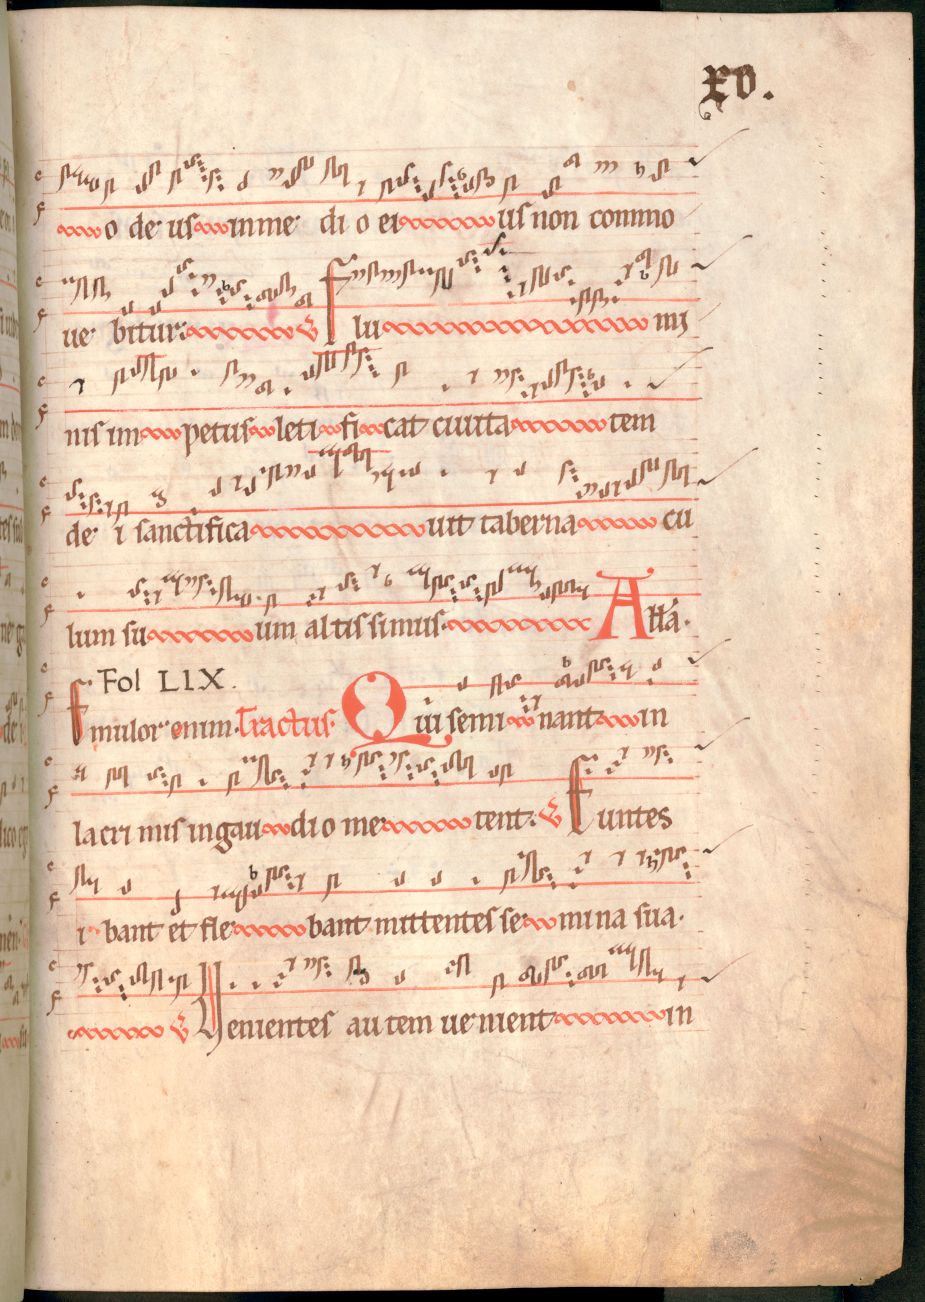 xv.
o de us in me di o ei us non commo
ue bitur: V Flu mi
nis im petus leti fi cat ciuita tem
de i sanctifica uit taberna cu
lum su um altissimus. All'a.
Fol LIX.
Emulor enim. Tractus. Qui semi nant in
lacri mis in gau di o me tent: V Euntes
i bant et fle bant mittentes se mi na sua.
V Uenientes autem ue nient in